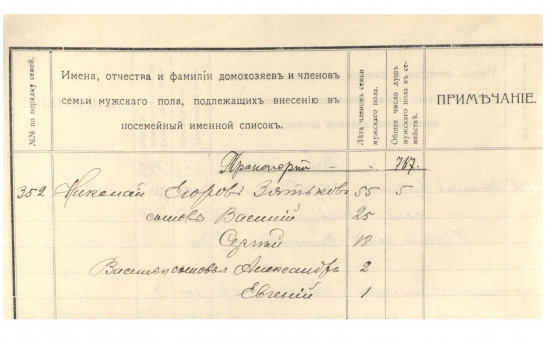 №№ по порядку семей.
Имена, отчества и фамиліи домохозяевъ и членовъ
семьи мужскаго пола, подлежащихъ внесенію въ
посемейный именной списокъ.
Лѣта членовъ семьи
мужскаго пола.
Общее число душъ
мужскаго пола въ се-
мействѣ.
ПРИМѢЧАНІЕ.
Транспортъ - - 767.
352 Николай Егоровъ Зятьковъ 55 5
сыновья Василій 25
Сергѣй 18
Васильи сыновья Александръ 2
Евгеній 1